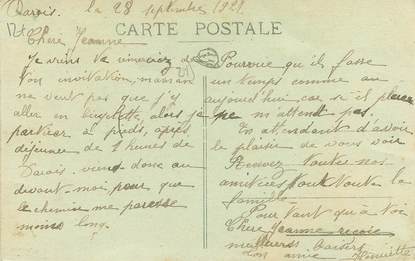 Darois. le 28 septembre 1921
CARTE POSTALE
Chère Jeanne
Je viens te remercier de
ton invitation, maman
ne veut pas que j'y
aller en bicyclette, alors je
partirer à pieds, après
déjeuner de 1 heures de
Darois, viens donc au
devant moi, pour que
le chemin me paresse
moins long.
Pourvue qu'il fasse
un temps comme au
aujourd'hui, car si il pleuve
ne m'attend pas.
En attendant d'avoir
le plaisir de vous voir
Recevez toutes nos
amitiées tout toute la
famille
Pour tant qu'à toi
Chère Jeanne reçois
meilleurs baisers
Ton amie Henriette